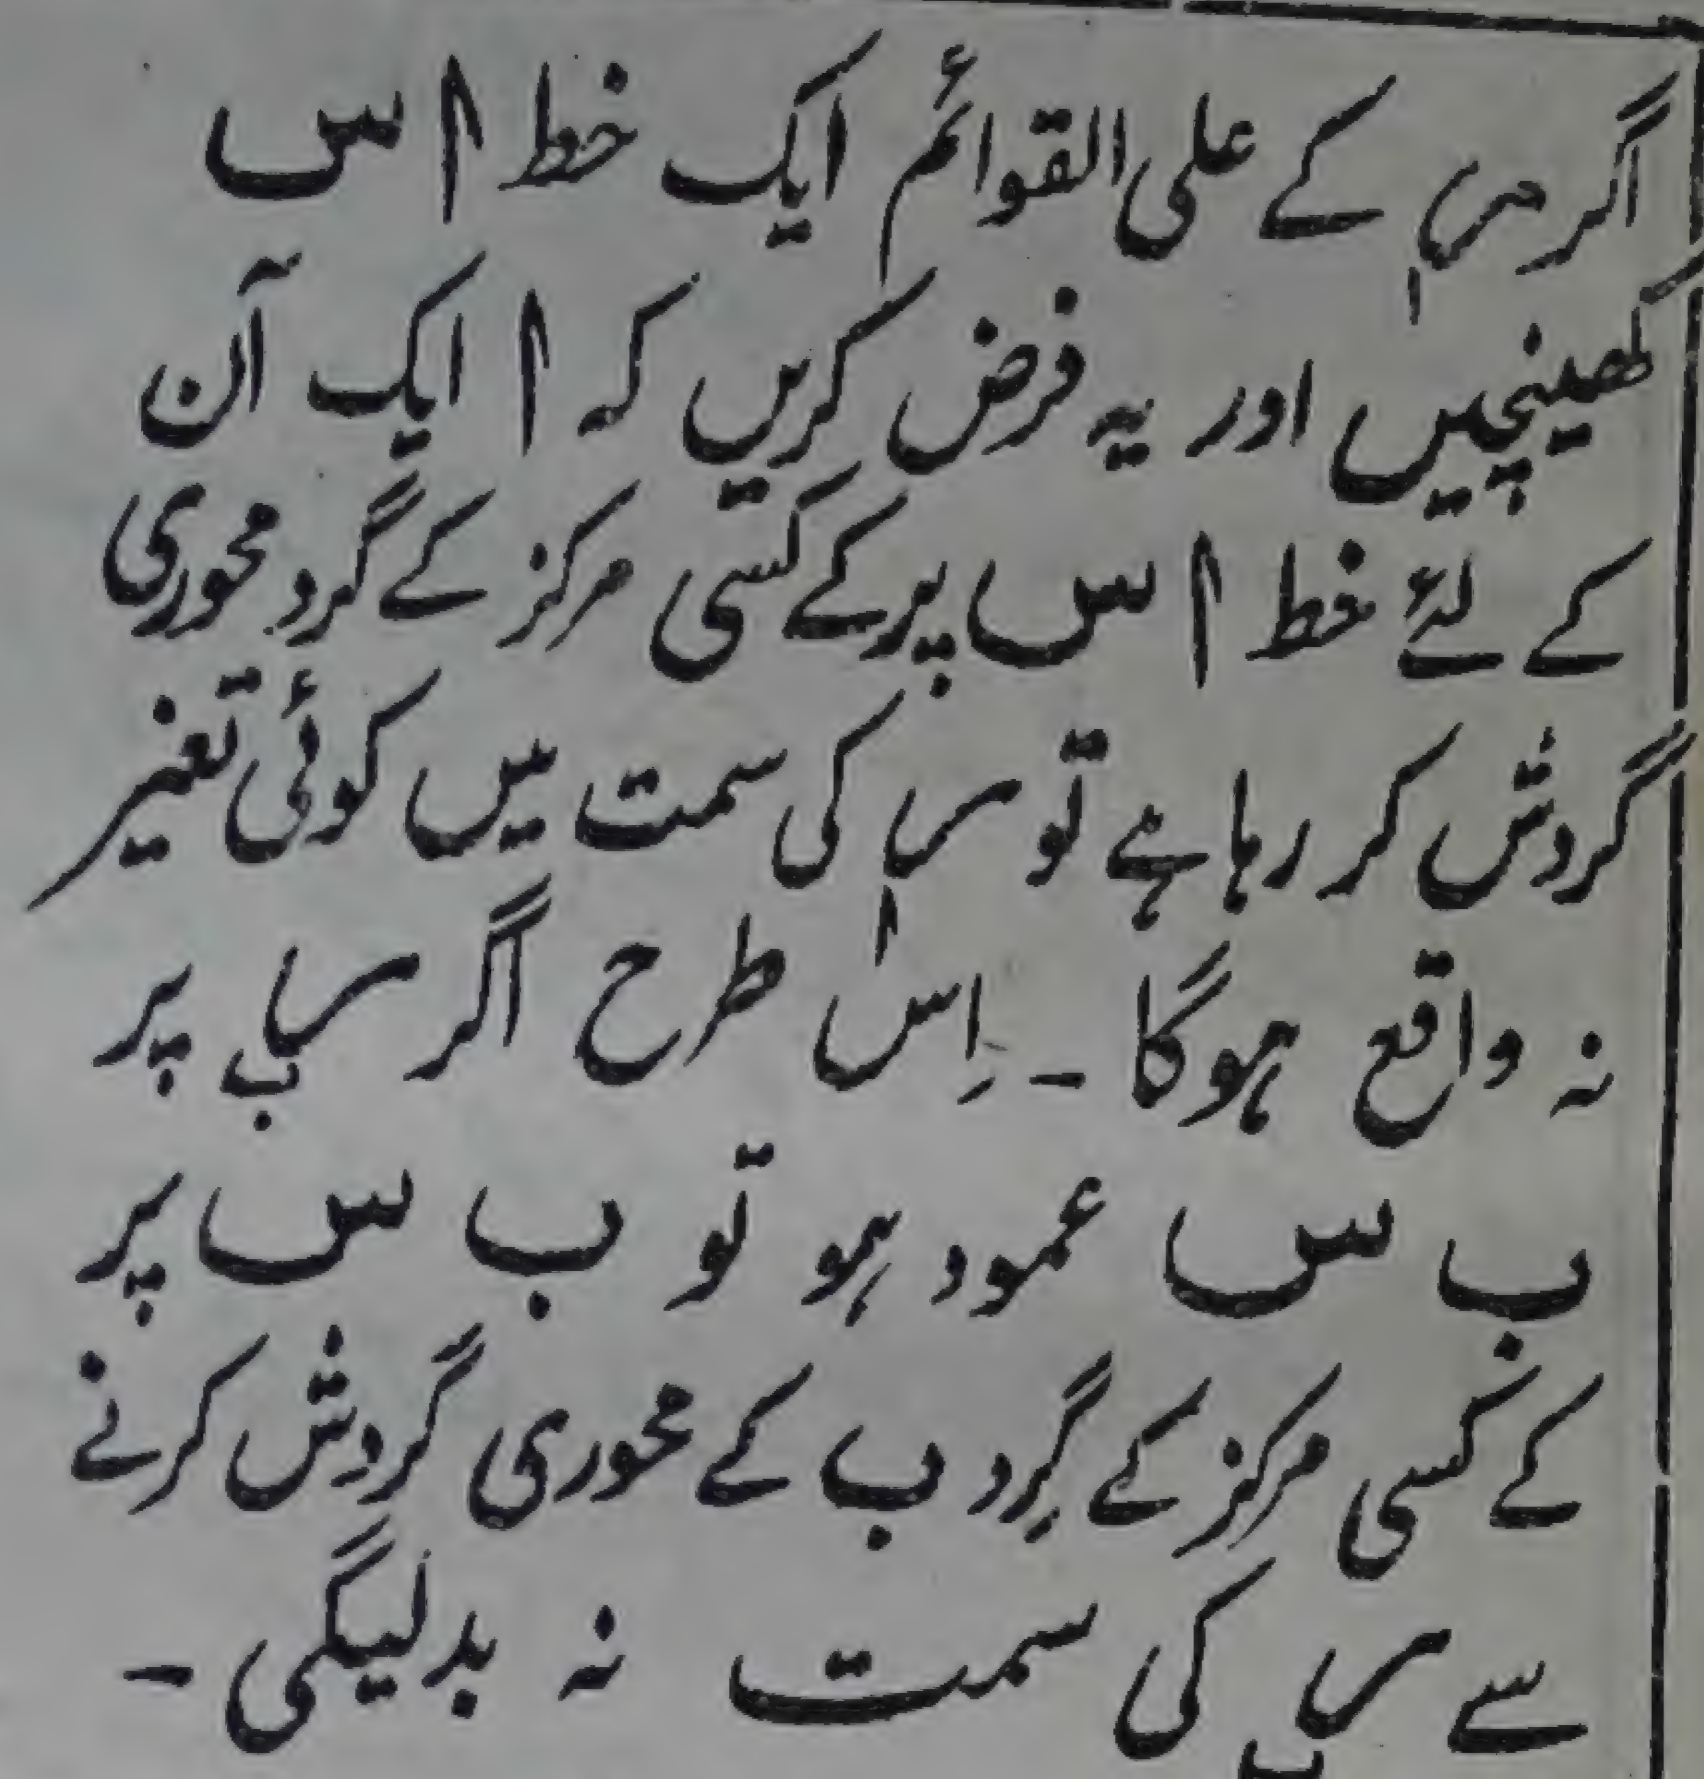 اگر سں کے علی القوائم ایک خط ا س
کھینچیں اور یہ فرض کریں کہ ا ایک آن
کے لئے خط ا س پر کے کسی مرکز کے گرد محوری
گردش کر رہا ہے تو سرا کی سمت میں کوئی تغیر
نہ واقع ہوگا ۔ اِس طرح اگر سرب پر
ب س عمود ہو تو ب س پر
کے کسی مرکز کے گِرد ب کے محوری گردِش کرنے
سے سرب کی سمت نہ بدلیگی ۔